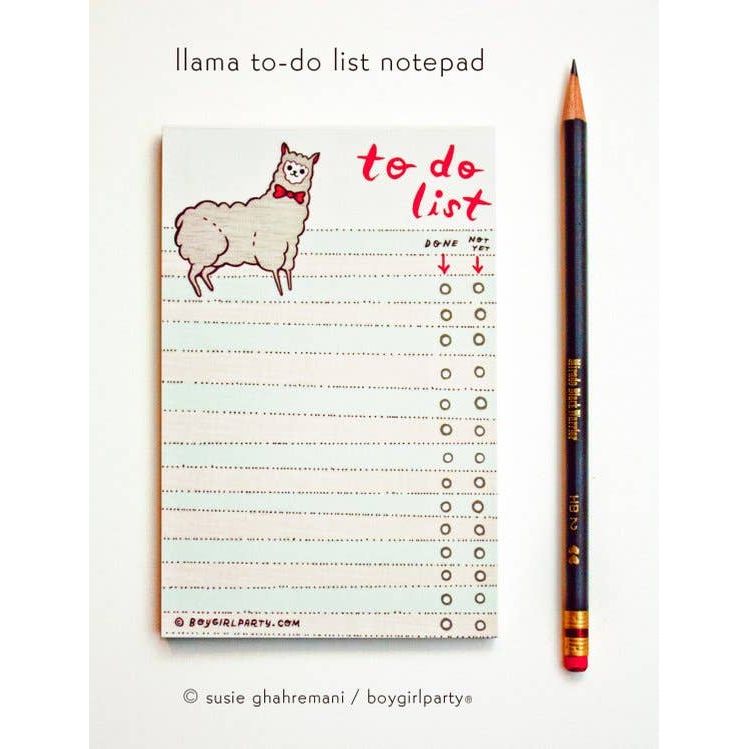 llama to-do list notepad
to do
list
DONE
NOT
YET
Mirado Black Warrior
HB 2
© BOYGIRLPARTY.COM
© susie ghahremani / boygirlparty®